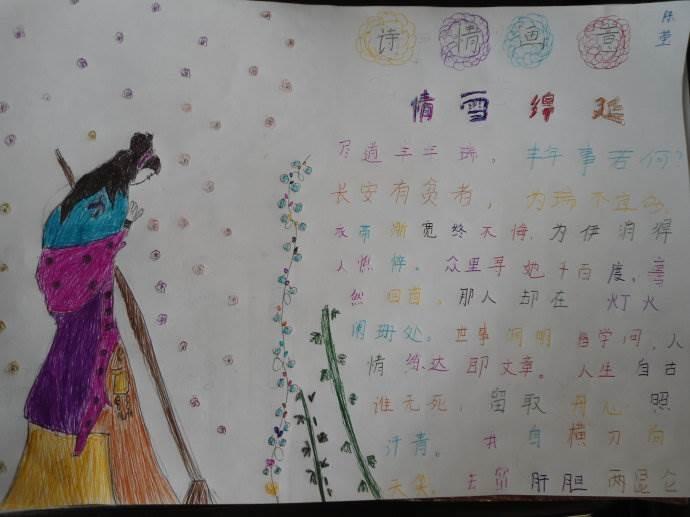 诗情画意
情雪绵延
尽道丰年瑞。丰年事若何?
长安有贫者,为瑞不宜多
衣带渐宽终不悔.为伊消得
人憔悴。众里寻她千百度,蓦
然回首,那人却在灯火
阑珊处。世事洞明皆学问,人
情练达即文章。人生自古
谁无死,留取丹心照
汗青。我自横刀向
天笑,去留肝胆两昆仑